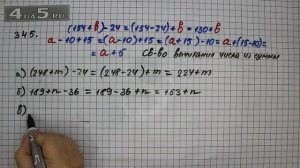 4da5.ru
345.
(154+в)-24=(154-24)+в=130+в
а-10+15=(а-10)+15=(а+15)-10=а+(15-10)=
=а+5 св-во вычитания числа из суммы
а) (248+m)-24=(248-24)+m=224+m
б) 189+n-36=189-36+n=153+n
в)